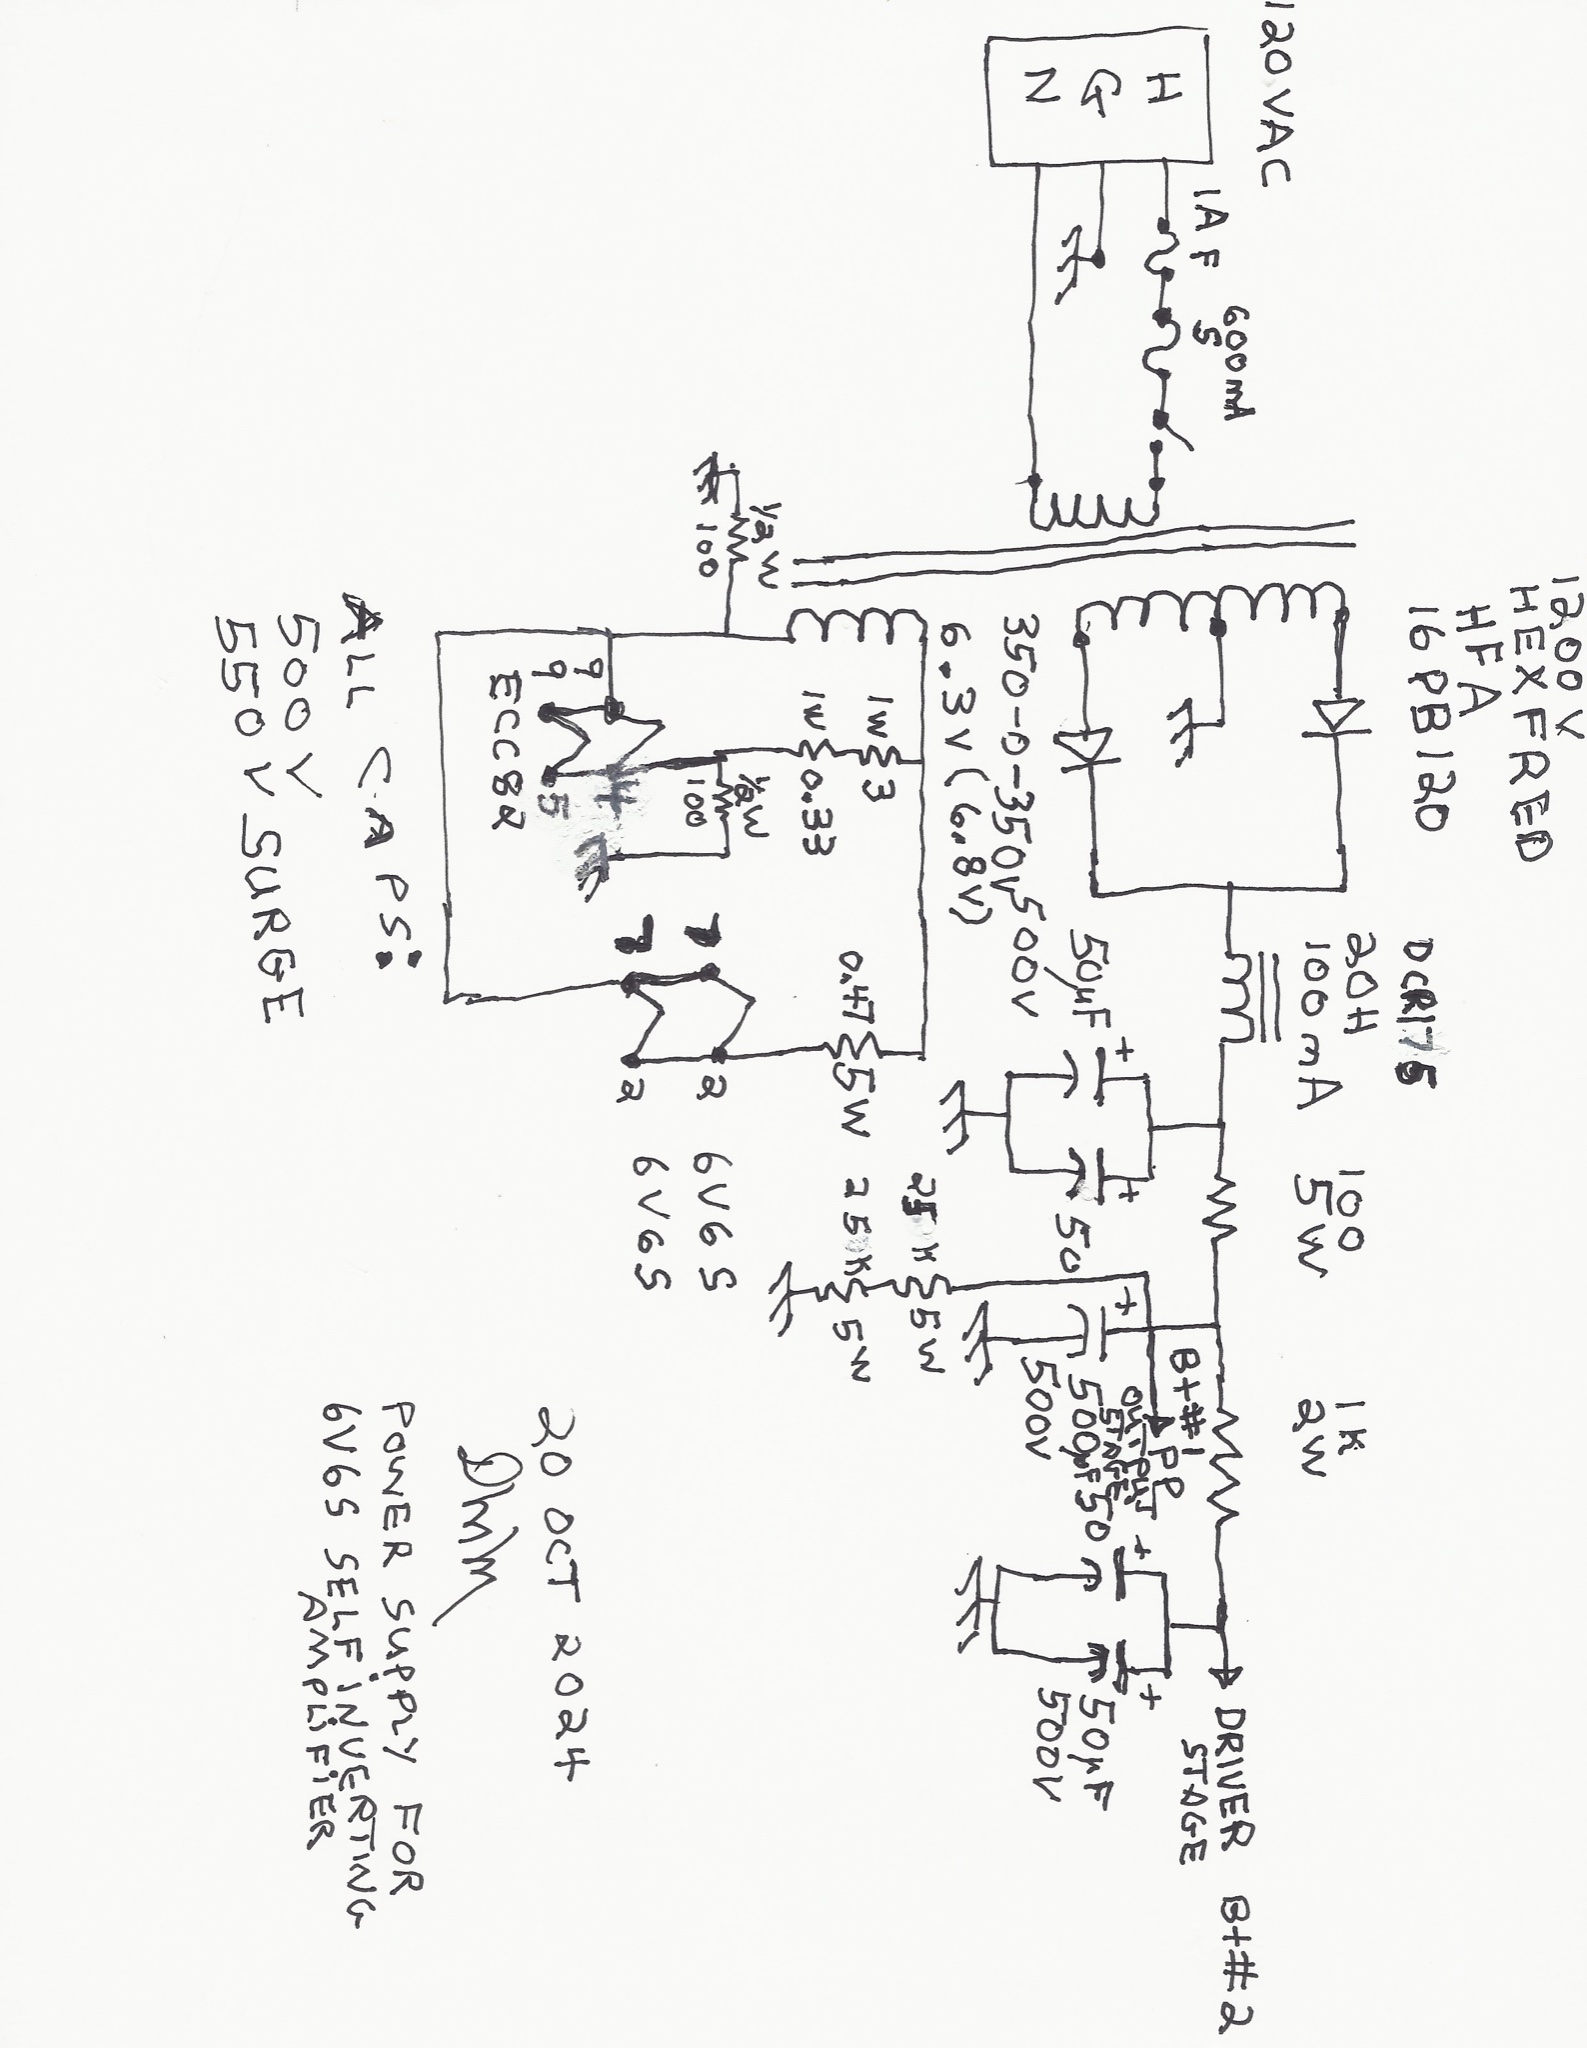 120VAC
H
G
N
1A F
600mA
S
1200V
HEXFRED
HFA
16PB120
350-0-350V
6.3V (6.8V)
DCR175
20H
100mA
100
5W
1K
2W
500V
50µF
+
+
50
B+#1
PP
OUTPUT
STAGE
+
500µF
500V
25K
5W
25K
5W
50
+
+
50µF
500V
DRIVER
STAGE
B+#2
1/2W
100
1W
3
1W
0.33
1/2W
100
0.47
5W
9
9
4
5
ECC82
7
7
2
2
6V6S
6V6S
ALL CAPS:
500V
550V SURGE
20 OCT 2024
POWER SUPPLY FOR
6V6S SELF INVERTING
AMPLIFIER